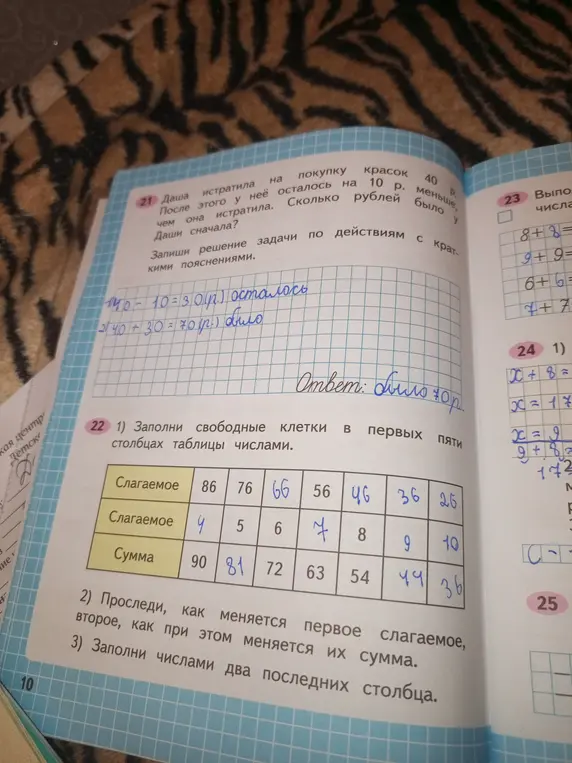 21 Даша истратила на покупку красок 40 р.
После этого у неё осталось на 10 р. меньше,
чем она истратила. Сколько рублей было у
Даши сначала?
Запиши решение задачи по действиям с крат-
кими пояснениями.
1) 40 - 10 = 30 (р.) осталось
2) 40 + 30 = 70 (р.) было
Ответ: было 70 р.
22 1) Заполни свободные клетки в первых пяти
столбцах таблицы числами.
Слагаемое 86 76 66 56 46 36 26
Слагаемое 4 5 6 7 8 9 10
Сумма 90 81 72 63 54 44 36
2) Проследи, как меняется первое слагаемое,
второе, как при этом меняется их сумма.
3) Заполни числами два последних столбца.
10
23 Выпо
числа
8+8=
9+9=
6+6=
7+7
24 1)
x+8=
x=17
x=9
9+8=
17=
25